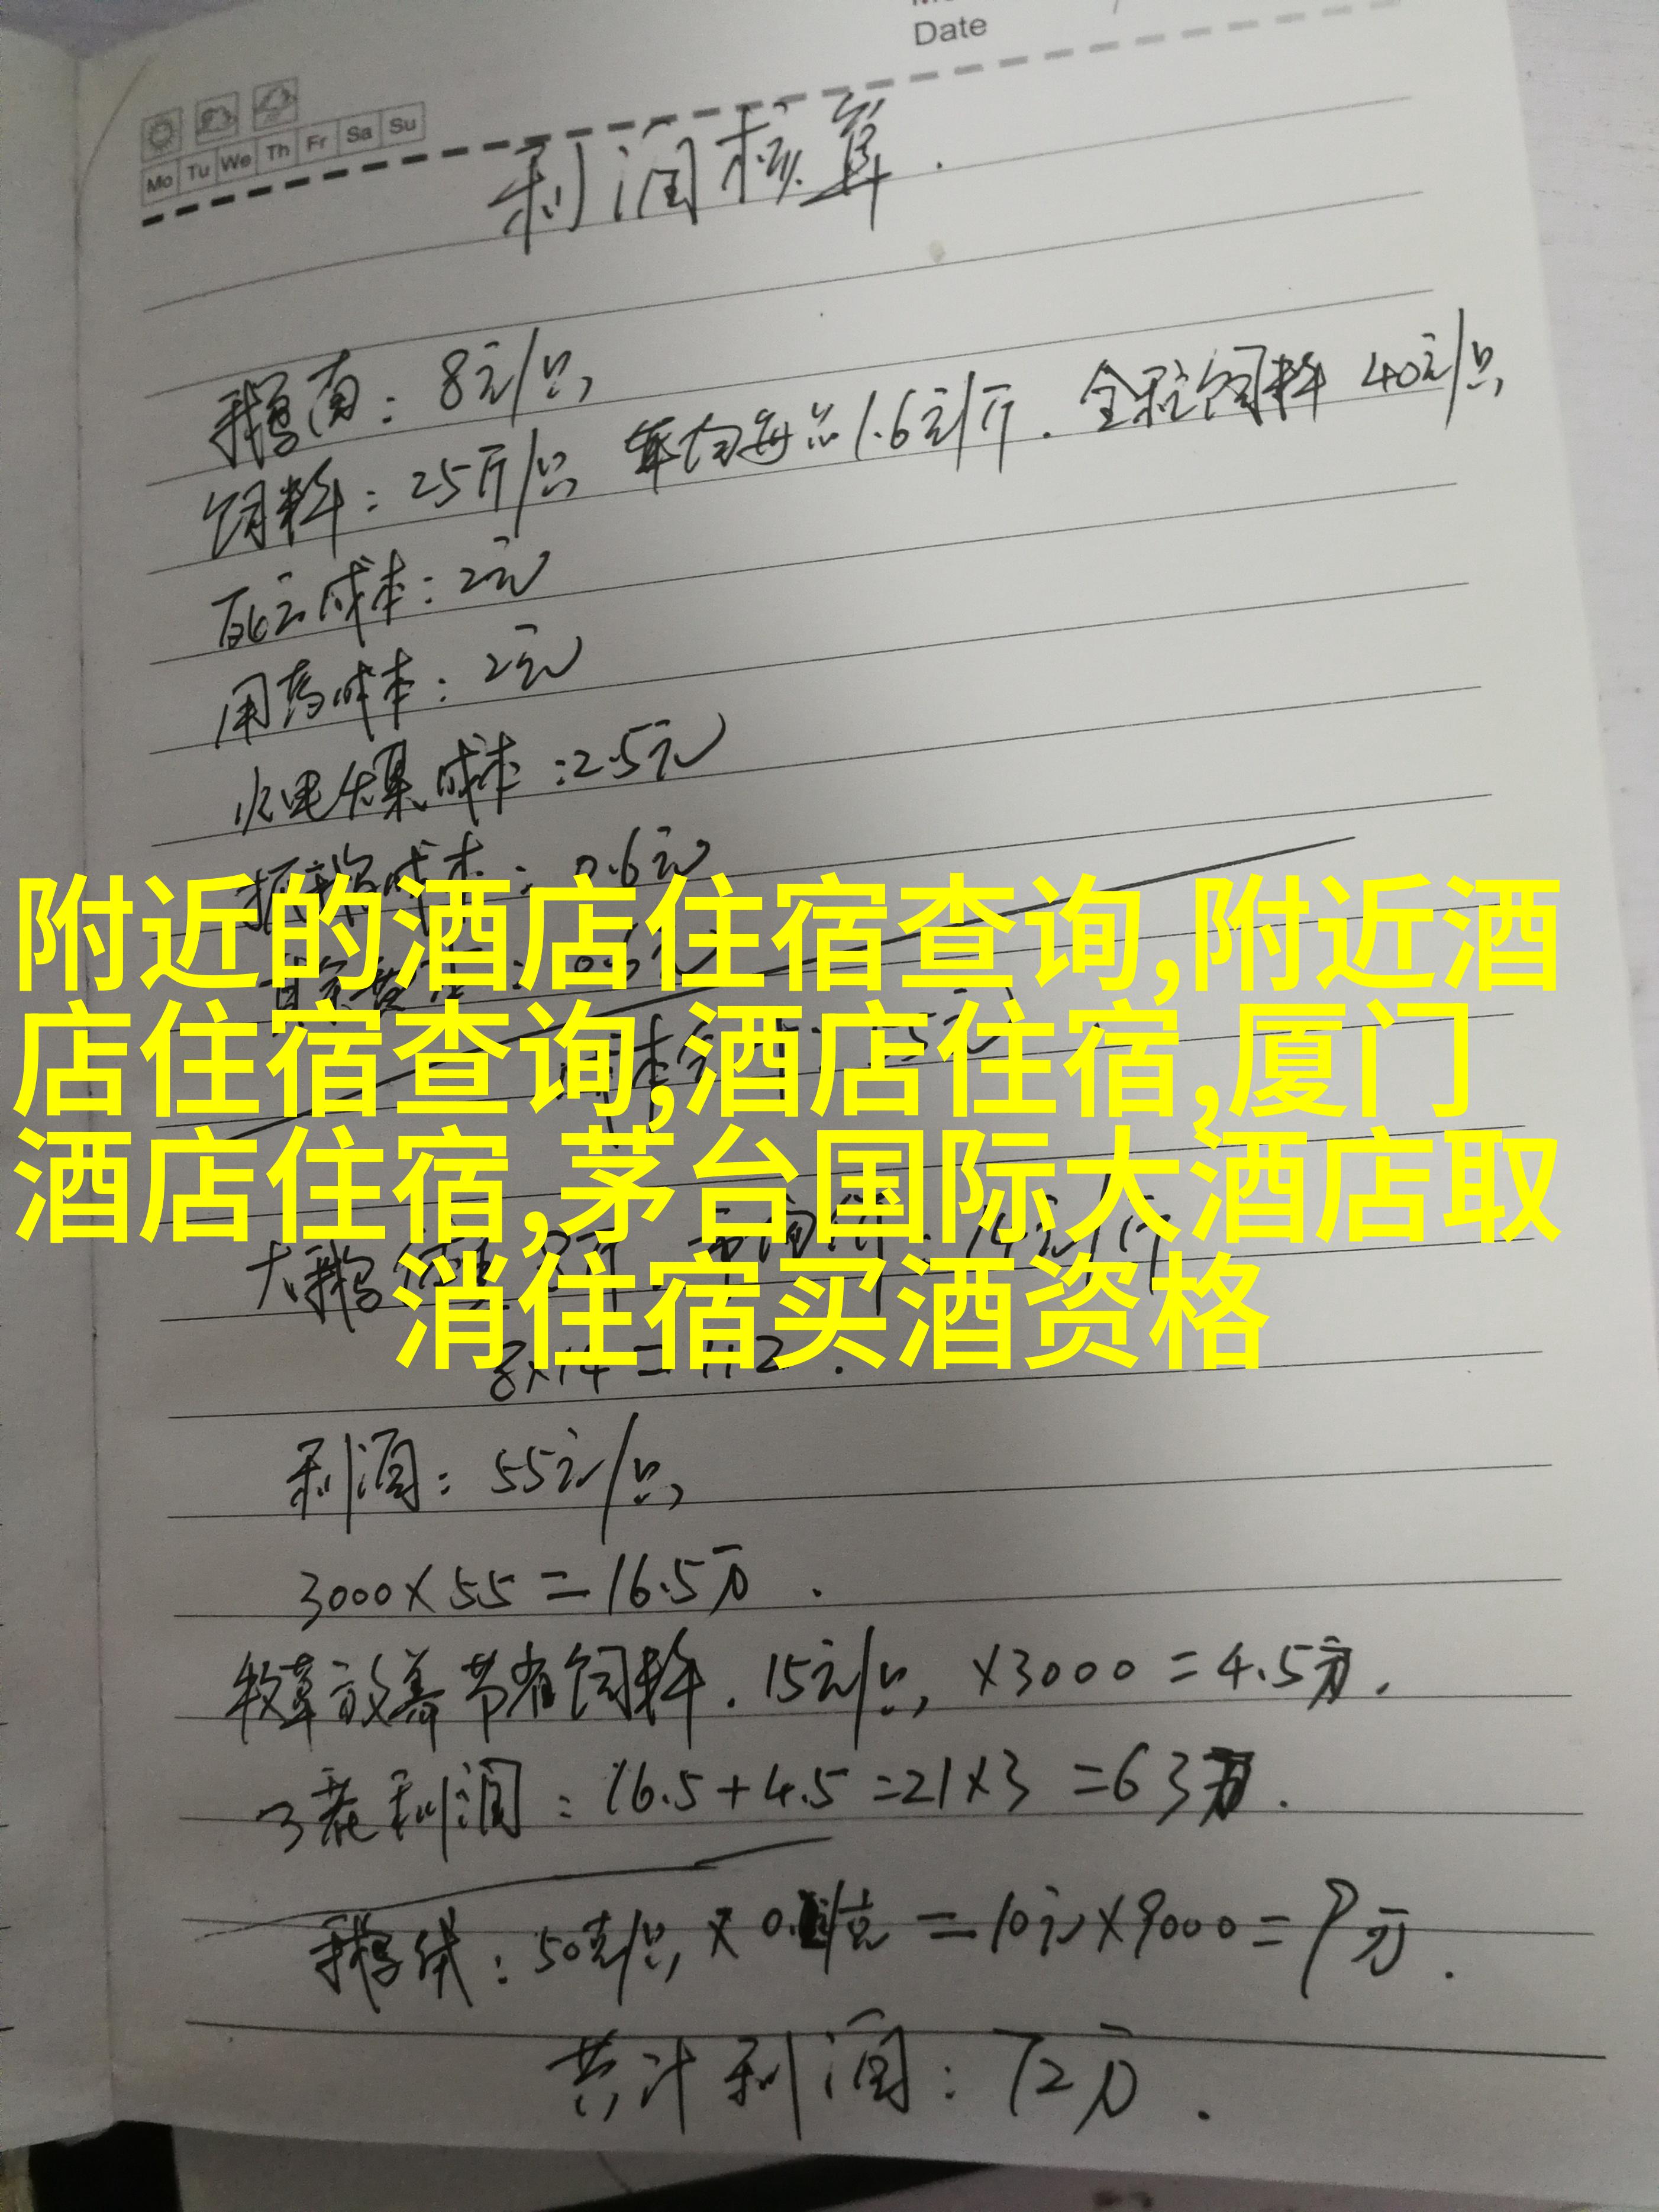 Date
Mo Tu We Th Fr Sa Su
利润核算.
鹅苗: 8元/只
饲料: 25斤/只 平均每 1.6元/斤. 全程饲料 40元/只
死亡成本: 2元
用药成本: 2元
水电煤成本: 2.5元
成本: 0.6元
附近的酒店住宿查询,附近酒
店住宿查询,酒店住宿,厦门
酒店住宿,茅台国际大酒店取
消住宿买酒资格
大鹅
8×14=112.
利润: 55元/只
3000×55=16.5万.
牧草放养节省饲料. 15元/只, ×3000=4.5万.
3茬利润: 16.5+4.5=21×3=63万.
鹅绒: 50克/只 × =10元×9000=9万.
共计利润: 72万.